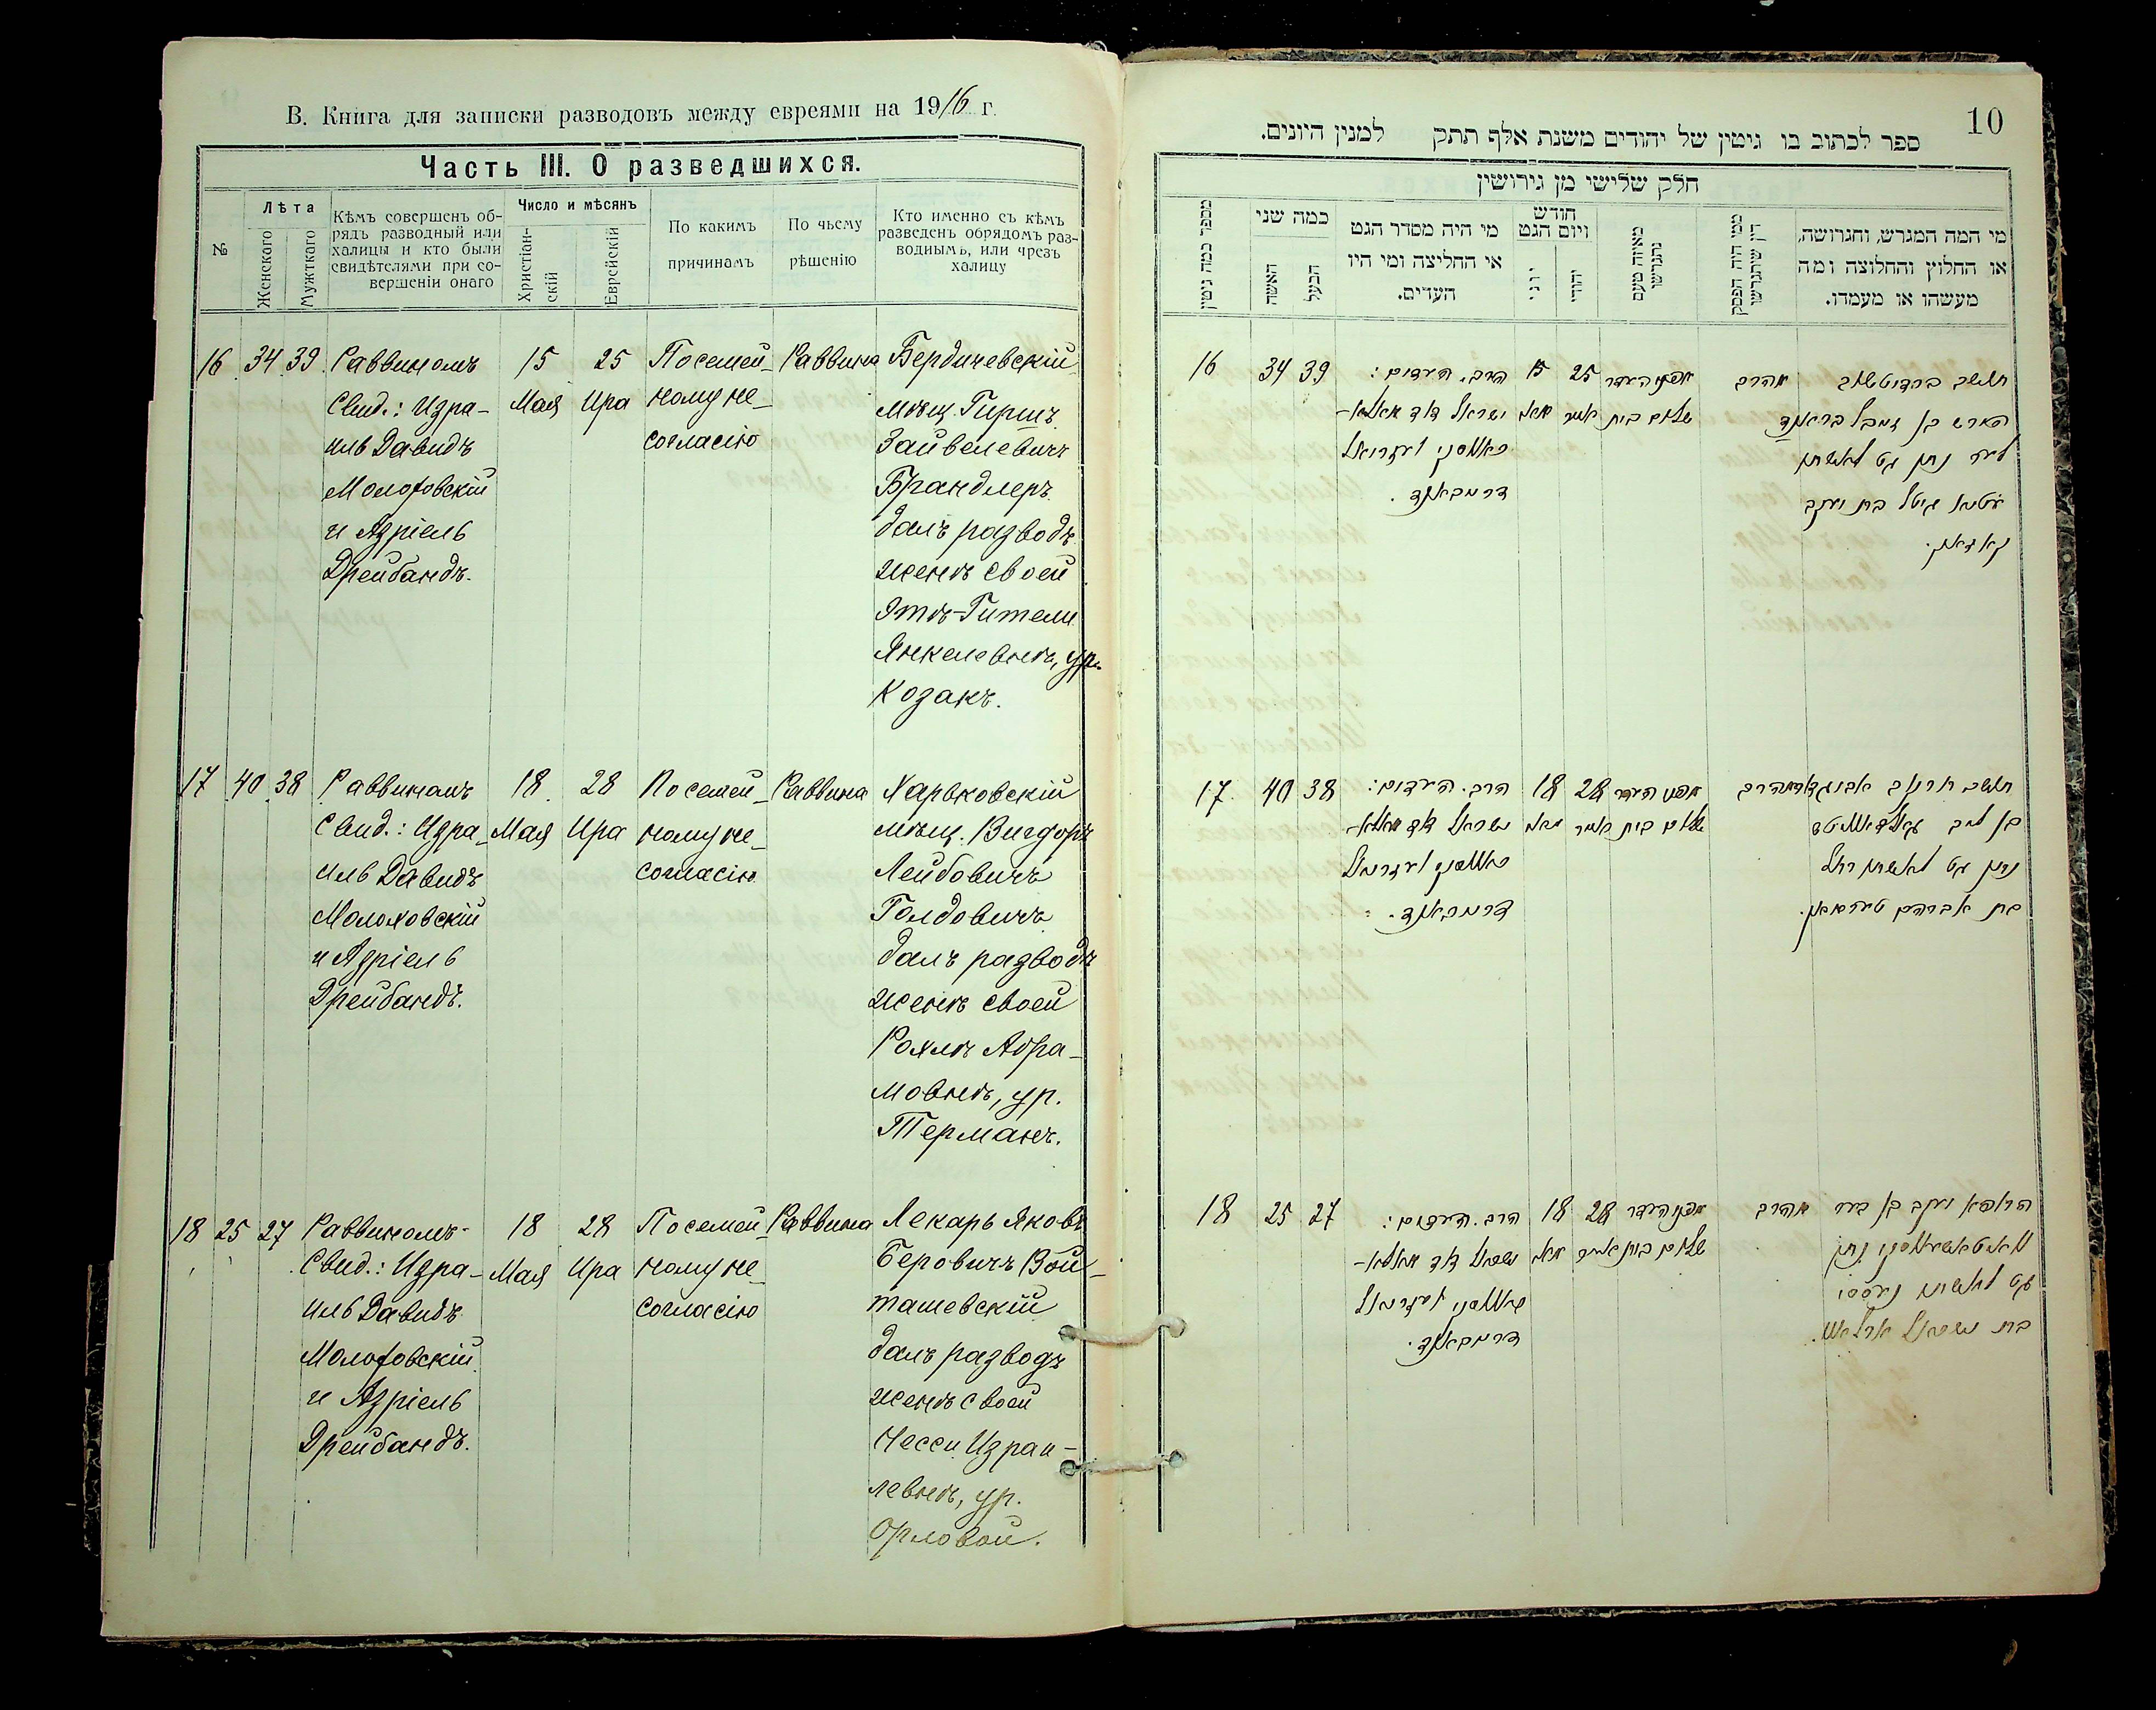 В. Книга для записки разводовъ между евреями на 1916 г.
Часть III. О разведшихся.
№
Лѣта
Женскаго
Мужткаго
Кѣмъ совершенъ об-
рядъ разводный или
халицы и кто были
свидѣтелями при со-
вершеніи онаго
Число и мѣсянъ
Христіан-
скій
Еврейскій
По какимъ
причинамъ
По чьему
рѣшенію
Кто именно съ кѣмъ
разведенъ обрядомъ раз-
воднымъ, или чрезъ
халицу
16 34 39
Раввиномъ
Свид.: Изра-
иль Давидъ
Молоховскій
и Азріель
Дрейбандъ.
15
Мая
25
Ира
По семей-
ному не-
согласію
Раввина
Бердичевскій
мѣщ. Гиршъ
Зайвелевичъ
Брандлеръ
далъ разводъ
женѣ своей
Этѣ-Гители
Янкелевнѣ, ур.
Козакъ.
17 40 38
Раввиномъ
Свид.: Изра-
иль Давидъ
Молоховскій
и Азріель
Дрейбандъ.
18
Мая
28
Ира
По семей-
ному не-
согласію
Раввина
Харьковскій
мѣщ. Вигдоръ
Лейбовичъ
Голдовичъ
далъ разводъ
женѣ своей
Рохлѣ Абра-
мовнѣ, ур.
Терманъ.
18 25 27
Раввиномъ
Свид.: Изра-
иль Давидъ
Молоховскій
и Азріель
Дрейбандъ.
18
Мая
28
Ира
По семей-
ному не-
согласію
Раввина
Лекарь Яковъ
Беровичъ Вой-
ташевскій
далъ разводъ
женѣ своей
Несси Израи-
левнѣ, ур.
Орловой.
10
ספר לכתוב בו גיטין של יהודים משנת אלף תתק למנין היונים.
חלק שלישי מן גירושין
מי המה המגרש, והגרושה,
או החלוץ והחלוצה ומה
מעשהו או מעמדו.
ממי היה הפסק
דין שיתגרשו
מאיזה טעם
נתגרשו
חודש
ויום הגט
יהודי
יוני
מי היה מסדר הגט
או החליצה ומי היו
העדים.
כמה שני
הבעל
האשה
מספר כמה גיטין
16 34 39
הרב. העדים:
ישראל דוד מאלא-
דרייבאנד.
15
מאי
25
אייר
מפני העדר
שלום בית
מהרב
נתן גט לאשתו
גיטל בת יעקב
17 40 38
הרב. העדים:
ישראל דוד מאלא-
דרייבאנד.
18
מאי
28
אייר
מפני העדר
שלום בית
מהרב
נתן גט לאשתו רחל
בת אברהם טערמאן.
18 25 27
הרב. העדים:
ישראל דוד מאלא-
דרייבאנד.
18
מאי
28
אייר
מפני העדר
שלום בית
מהרב
הרופא יעקב בן בער
נתן
גט לאשתו נעססי
בת ישראל